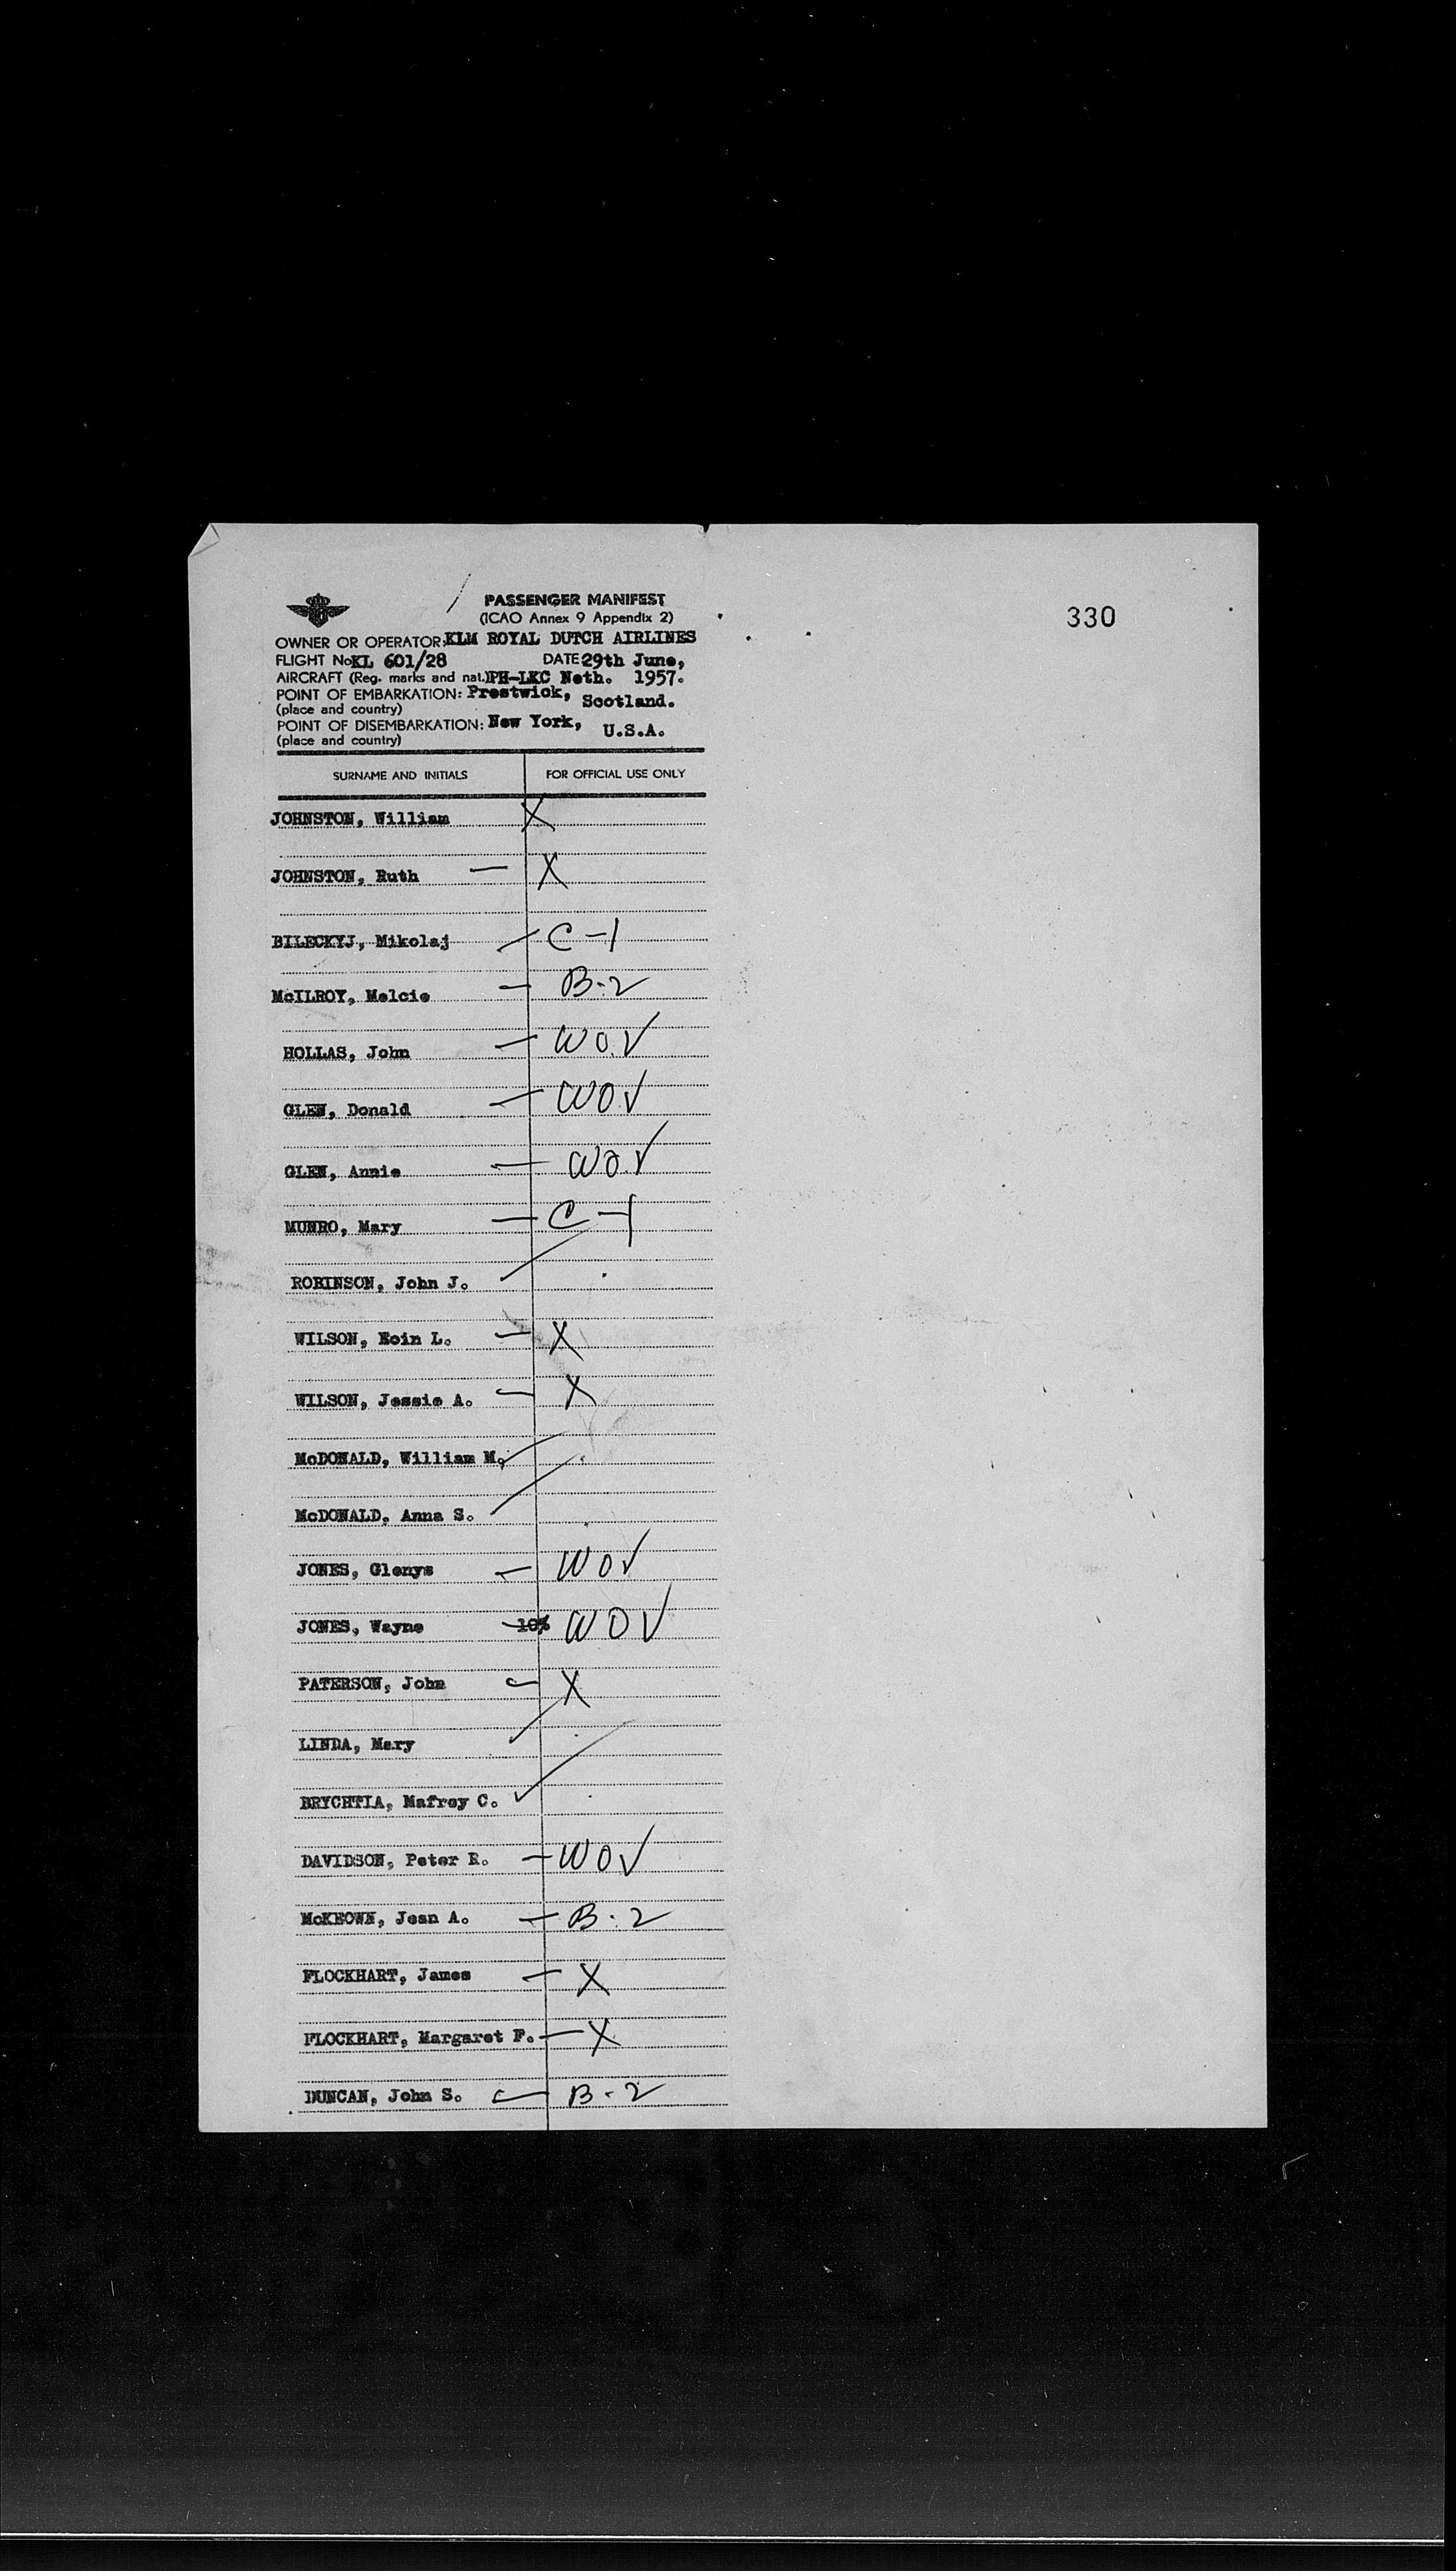 PASSENGER MANIFEST
(ICAO Annex 9 Appendix 2)
330
OWNER OR OPERATOR: KLM ROYAL DUTCH AIRLINES
FLIGHT No KL 601/28 DATE 29th June,
AIRCRAFT (Reg. marks and nat.) PH-LKC Neth. 1957.
POINT OF EMBARKATION: Prestwick, Scotland.
(place and country)
POINT OF DISEMBARKATION: New York, U.S.A.
(place and country)
SURNAME AND INITIALS FOR OFFICIAL USE ONLY
JOHNSTON, William X
JOHNSTON, Ruth — X
BILECKYJ, Mikolaj — C-1
McILROY, Melcie — B-2
HOLLAS, John — WOV
GLEN, Donald — WOV
GLEN, Annie — WOV
MUNRO, Mary — C-1
ROBINSON, John J.
WILSON, Eoin L. — X
WILSON, Jessie A. — X
McDONALD, William M.
McDONALD, Anna S.
JONES, Glenys — WOV
JONES, Wayne 10% WOV
PATERSON, John X
LINDA, Mary
BRYCHTIA, Mafrey C.
DAVIDSON, Peter R. — WOV
McKEOWN, Jean A. — B-2
FLOCKHART, James — X
FLOCKHART, Margaret F. — X
DUNCAN, John S. — B-2